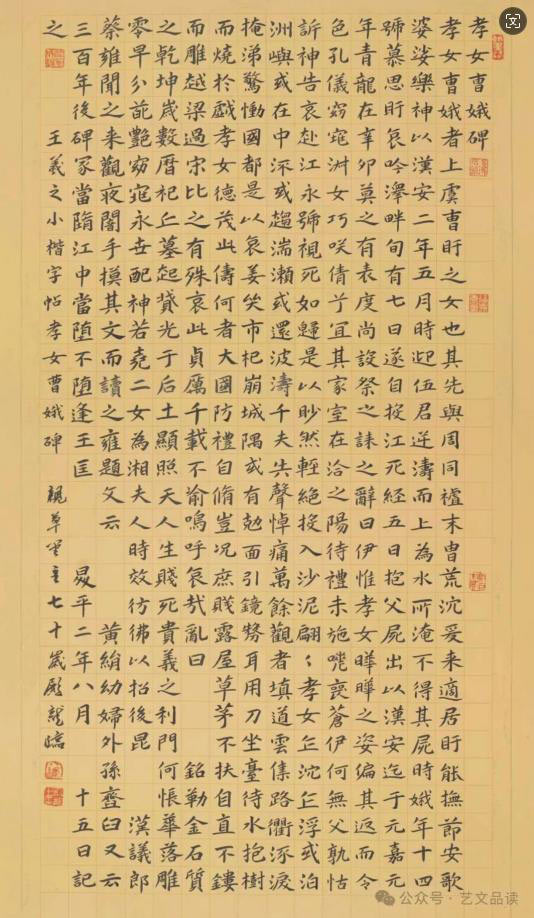 孝女曹娥碑
孝女曹娥者上虞曹盱之女也其先與周同祖末胄荒沉爰来適居盱能撫節安歌
婆娑樂神以漢安二年五月時迎伍君逆濤而上為水所淹不得其屍時娥年十四
號慕思盱哀吟澤畔旬有七日遂自投江死経五日抱父屍出以漢安迄于元嘉元
年青龍在辛卯莫之有表度尚設祭之誄之辭曰伊惟孝女曄曄之姿偏其返而令
色孔儀窈窕淑女巧咲倩兮宜其家室在洽之陽待禮未施嗟喪蒼伊何無父孰怙
訴神告哀赴江永號視死如歸是以眇然輕絶投入沙泥翩〻孝女乍沉乍浮或泊
洲嶼或在中流或趨湍瀬或還波濤千夫失聲悼痛萬餘觀者填道雲集路衢泳淚
掩涕驚慟國都是以哀姜哭市杞崩城隅或有勊面引鏡剺耳用刀坐臺待水抱樹
而燒於戲孝女德茂此儔何者大國防禮自脩豈况庶賤露屋草茅不扶自直不鏤
而雕越梁過宋比之有殊哀此貞厲千載不渝嗚呼哀哉亂曰 銘勒金石質
之乾坤歲數曆祀丘墓起墳光于后土顯照天人生賤死貴義之利門何悵華落雕
零早分葩艷窈窕永世配神若堯二女為湘夫人時效彷彿以招後昆 漢議郎
蔡雍聞之来觀夜闇手摸其文而讀之雍題文云 黃絹幼婦外孫齏臼又云
三百年後碑冢當隳江中當墮不墮逢王匡 昇平二年八月 十五日記
之 王羲之小楷字帖孝女曹娥碑 草堂主七十歲 臨
公众号·艺文品读